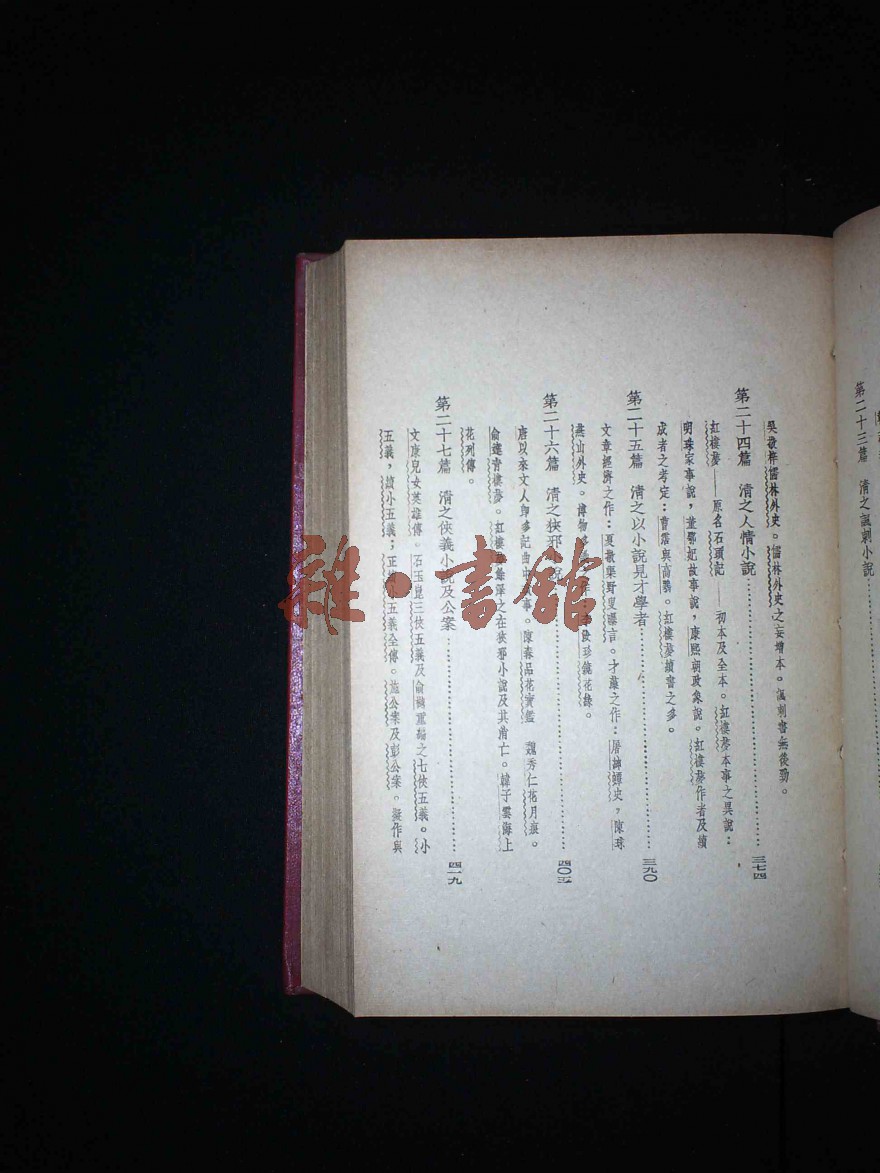 吳敬梓儒林外史。儒林外史之妄增本。諷刺書無後勁。
第二十四篇　清之人情小說……三七四
紅樓夢——原名石頭記——初本及全本。紅樓夢本事之異說：
明珠家事說，董鄂妃故事說，康熙朝政象說。紅樓夢作者及續
成者之考定：曹霑與高鶚。紅樓夢續書之多。
第二十五篇　清之以小說見才學者……三九〇
文章經濟之作：夏敬渠野叟曝言。才藻之作：屠紳蟫史，陳球
燕山外史。博物 珍鏡花緣。
第二十六篇　清之狹邪小說……四〇
唐以來文人即多記曲中 事。陳森品花寶鑑　魏秀仁花月痕。
俞達青樓夢。紅樓夢餘澤之在狹邪小說及其消亡。韓子雲海上
花列傳。
第二十七篇　清之俠義小說及公案……四一九
文康兒女英雄傳。石玉崑三俠五義及俞樾重編之七俠五義。小
五義，續小五義；正續小五義全傳。施公案及彭公案。擬作與
第二十三篇　清之諷刺小說
雜·書館